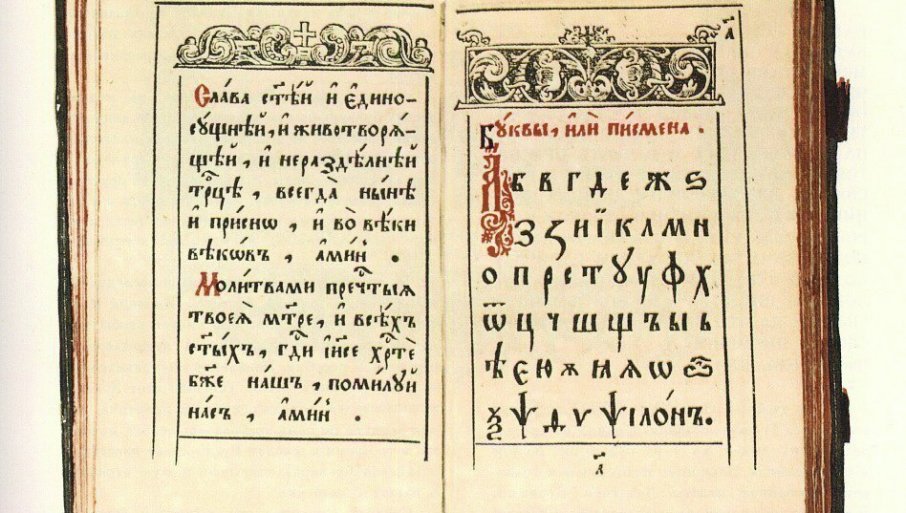 Сла́ва ст҃ѣ́й и҆ є҆дино-
сꙋ́щнѣй, и҆ животворѧ́-
щей, и҆ нераздѣ́лнѣй
трⷪ҇цѣ, всегда̀ ны́нѣ
и҆ при́снѡ, и҆ во̀ вѣ́ки
вѣкѡ́въ, а҆ми́нь.
Моли́твами пречⷭ҇тыѧ
твоеѧ̀ мт҃ре, и҆ всѣ́хъ
ст҃ы́хъ, гдⷭ҇и і҆и҃се хрⷭ҇тѐ
бж҃е на́шъ, поми́лꙋй
на́съ, а҆ми́нь.
а҃
Бꙋ́квы, и҆лѝ пи́смена.
А Б В Г Д Е Ж Ѕ
З Ꙁ И Ї К Л М Н
О П Р С Т Ꙋ У Ф Х
Ѿ Ц Ч Ш Щ Ъ Ы Ь
Ѣ Є Ю Ѫ Ꙗ Ѧ Ѡ Ѽ
Ѯ Ѱ Ѳ Ѵ ѱїло́нъ.
а҃